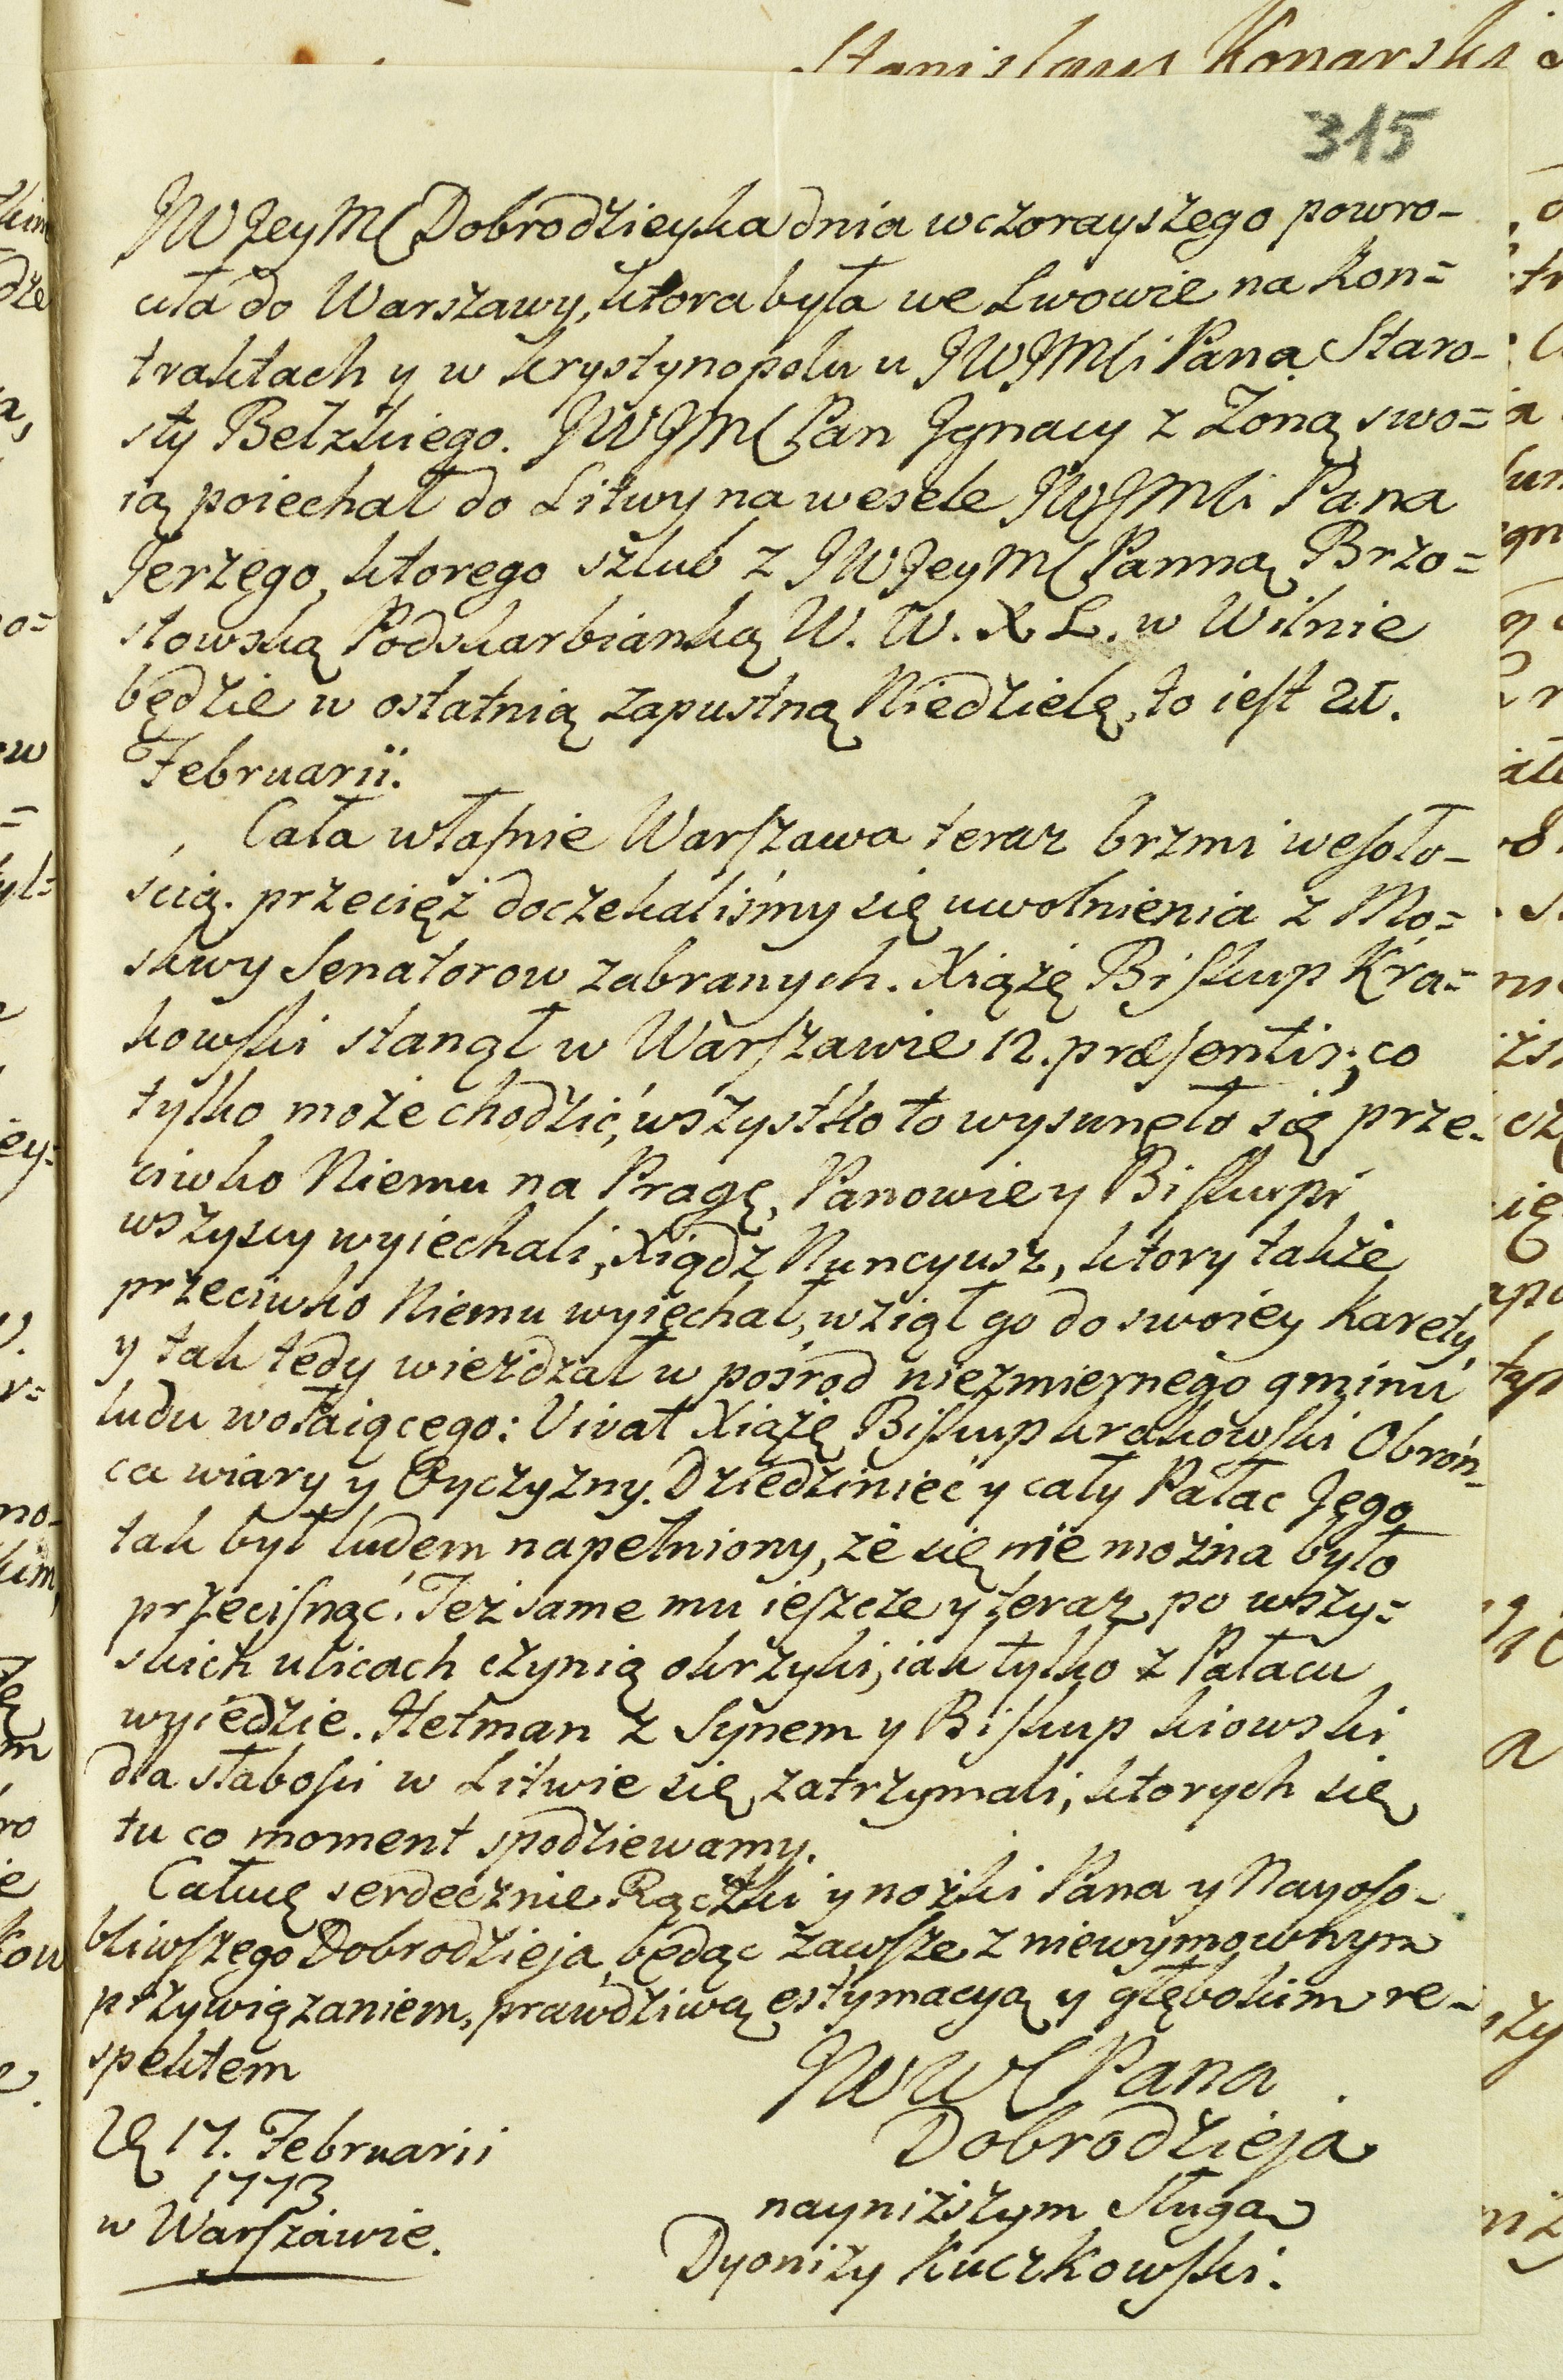 Stanislaus Konarski
315
JW JeyMC Dobrodzieyka dnia wczorayszego powro-
ciła do Warszawy, ktora była we Lwowie na Kon=
traktach y w Krystynopolu u JWJMCi Pana Staro-
sty Bełzkiego. JWJMC Pan Jgnacy z Zoną swo=
ią poiechał do Litwy na wesele JWJMCi Pana
Jerzego, ktorego szlub z JWJeyMC Panną Brzo=
stowską Podskarbianką W. W. X L. w Wilnie
będzie w ostatnią zapustną Niedzielę, to iest 21.
Februarii.
Cała właſnie Warſzawa teraz brzmi weſoło-
ścią. przecięż doczekaliśmy się uwolnienia z Mo=
skwy Senatorow zabranych. Xiążę Biſkup Kra=
kowſki stanął w Warſzawie 12. præſentis; co
tylko może chodzić, wszystko to wysunęło się prze-
ciwko Niemu na Pragę, Panowie y Biſkupi
wszyscy wyiechali, Xiądz Nuncyusz, ktory także
przeciwko Niemu wyiechał, wziął go do swoiey Karety,
y tak tedy wieżdzał w pośrod niezmiernego gminu
ludu wołaiącego: Vivat Xiążę Biſkup Krakowſki Obroń-
ca wiary y Oyczyzny. Dziedziniec y cały Pałac Jego
tak był ludem napełniony, że się nie można było
przeciſnąć. Też same mu ieſzcze y teraz po wszy=
skich ulicach czynią okrzyki, iak tylko z Pałacu
wyiedzie. Hetman z Synem y Biſkup Kiowski
dla słaboſci w Litwie się zatrzymali, ktorych się
tu co moment spodziewamy.
Całuię serdecznie Rączki y nożki Pana y Nayoſo-
bliwſzego Dobrodzieja, będąc zawſze z niewymownym
przywiązaniem, prawdziwą estymacyą y głębokim re-
spektem
JWWC Pana
Dobrodzieja
D 17. Februarii
1773
w Warſzawie.
nayniższym Sługą
Dyonizy Kuczkowſki.